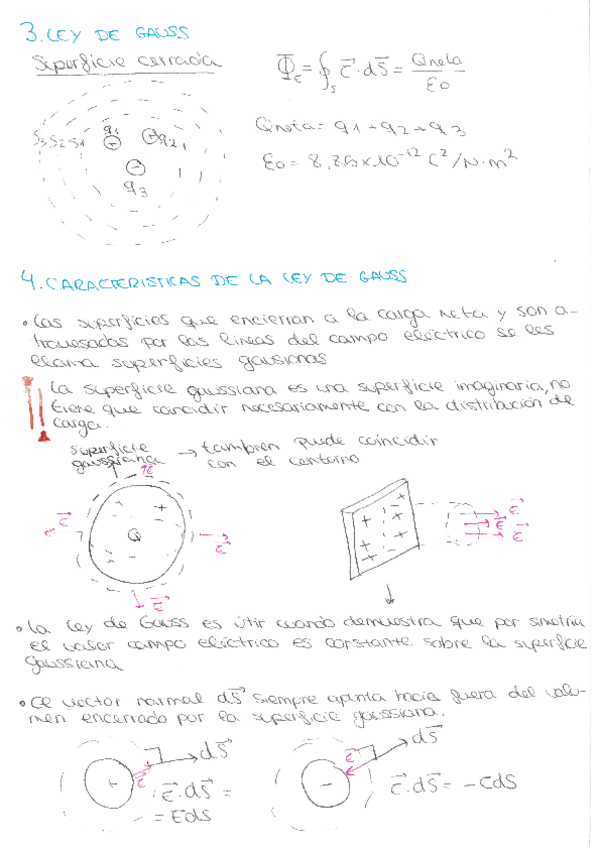 3. LEY DE GAUSS
Superficie cerrada
Φ_E = ∮_S E⃗ · dS⃗ = Qneta / ε0
S3 S2 S1 q1 + + q2 − q3
Qneta = q1 + q2 + q3
ε0 = 8,85 x 10^-12 C²/N·m²
4. CARACTERISTICAS DE LA LEY DE GAUSS
• Las superficies que encierran a la carga neta y son a-
travesadas por las líneas del campo eléctrico se les
llama superficies gausianas
La superficie gaussiana es una superficie imaginaria, no
tiene que coincidir necesariamente con la distribución de
carga.
superficie
gaussiana
→ tambien puede coincidir
con el contorno
E⃗ E⃗ E⃗ E⃗ Q + + + − −
+ + + + + + E⃗ E⃗ E⃗
• La Ley de Gauss es útil cuando demuestra que por simetría
el valor campo eléctrico es constante sobre la superficie
gaussiana
• El vector normal dS⃗ siempre apunta hacia fuera del volu-
men encerrado por la superficie gaussiana.
+ E⃗ dS⃗
E⃗ · dS⃗ =
= EdS
− E⃗ dS⃗
E⃗ · dS⃗ = −EdS